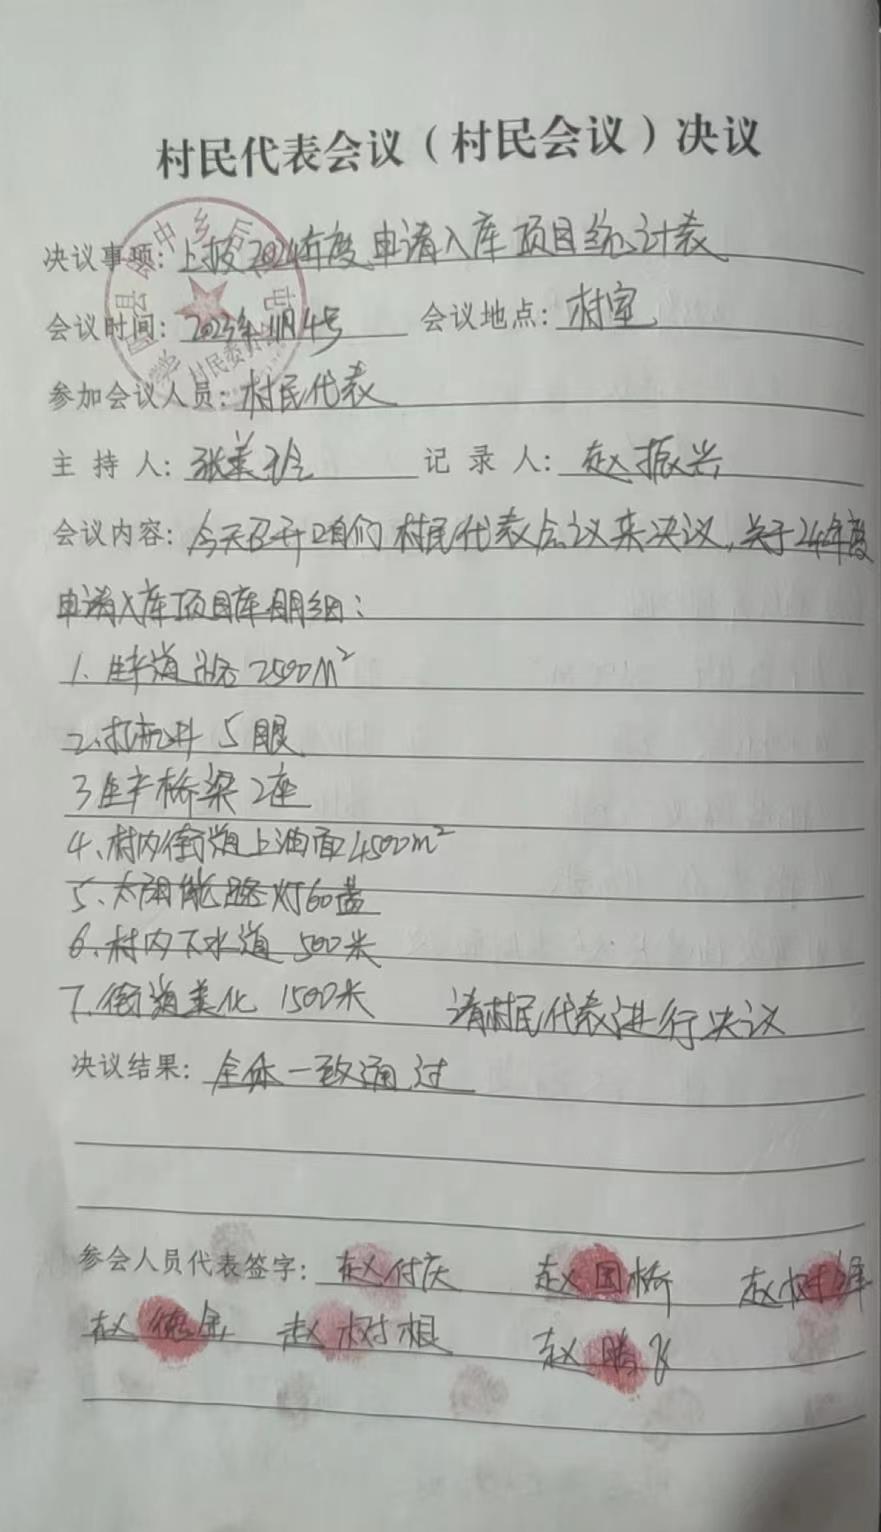 村民代表会议（村民会议）决议
决议事项：上报2024年度申请入库项目统计表
会议时间：2023年11月4号 会议地点：村室
参加会议人员：村民代表
主持人：张美玲 记录人：赵振兴
会议内容：今天召开咱们村民代表会议来决议，关于24年度
申请入库项目库明细：
1、生产道路2500M²
2、打机井5眼
3生产桥梁2座
4、村内街道上油面4500m²
5、太阳能路灯60盏
6、村内下水道500米
7、街道美化1500米 请村民代表进行决议
决议结果：全体一致通过
参会人员代表签字：赵付庆 赵国桥 赵树
赵德 赵树根 赵腾飞
中乡后
村民委